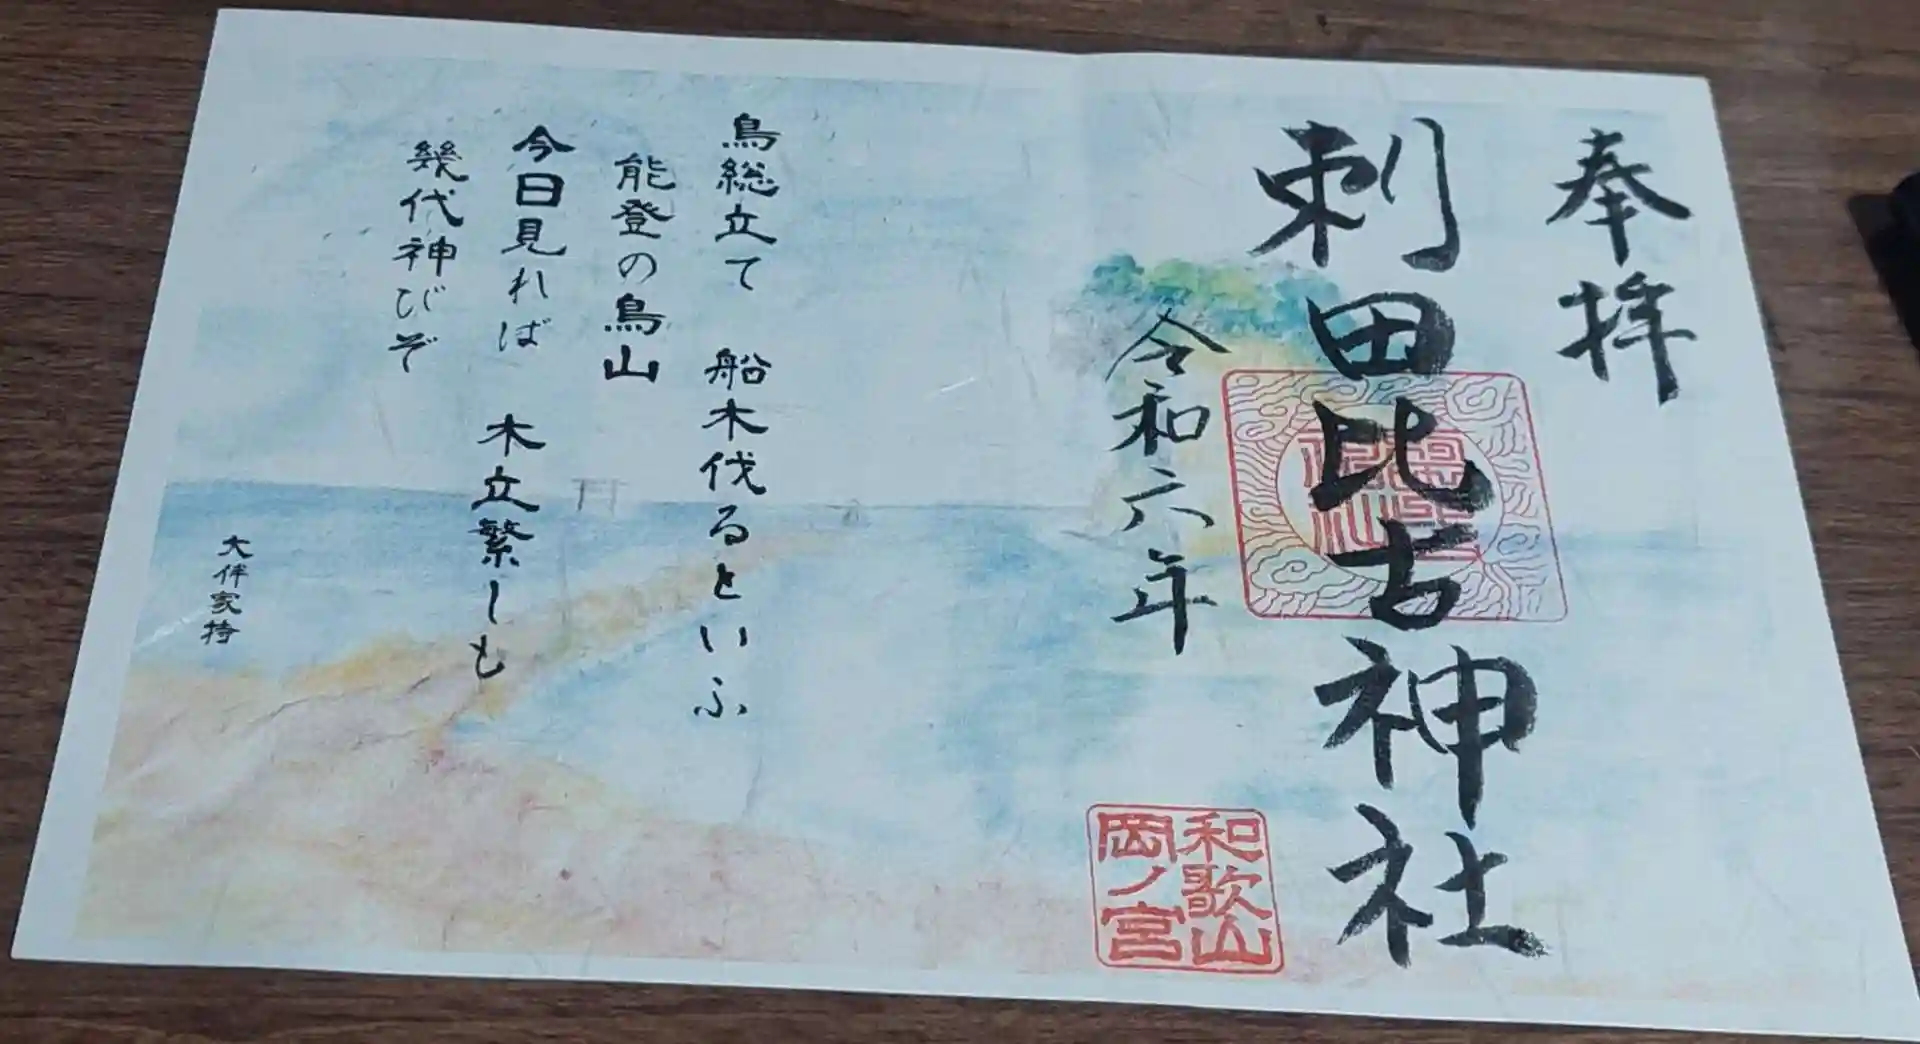 奉拝
刺田比古神社
令和六年
和歌山
岡ノ宮
鳥総立て　船木伐るといふ
能登の島山
今日見れば　木立繁しも
幾代神びぞ
大伴家持